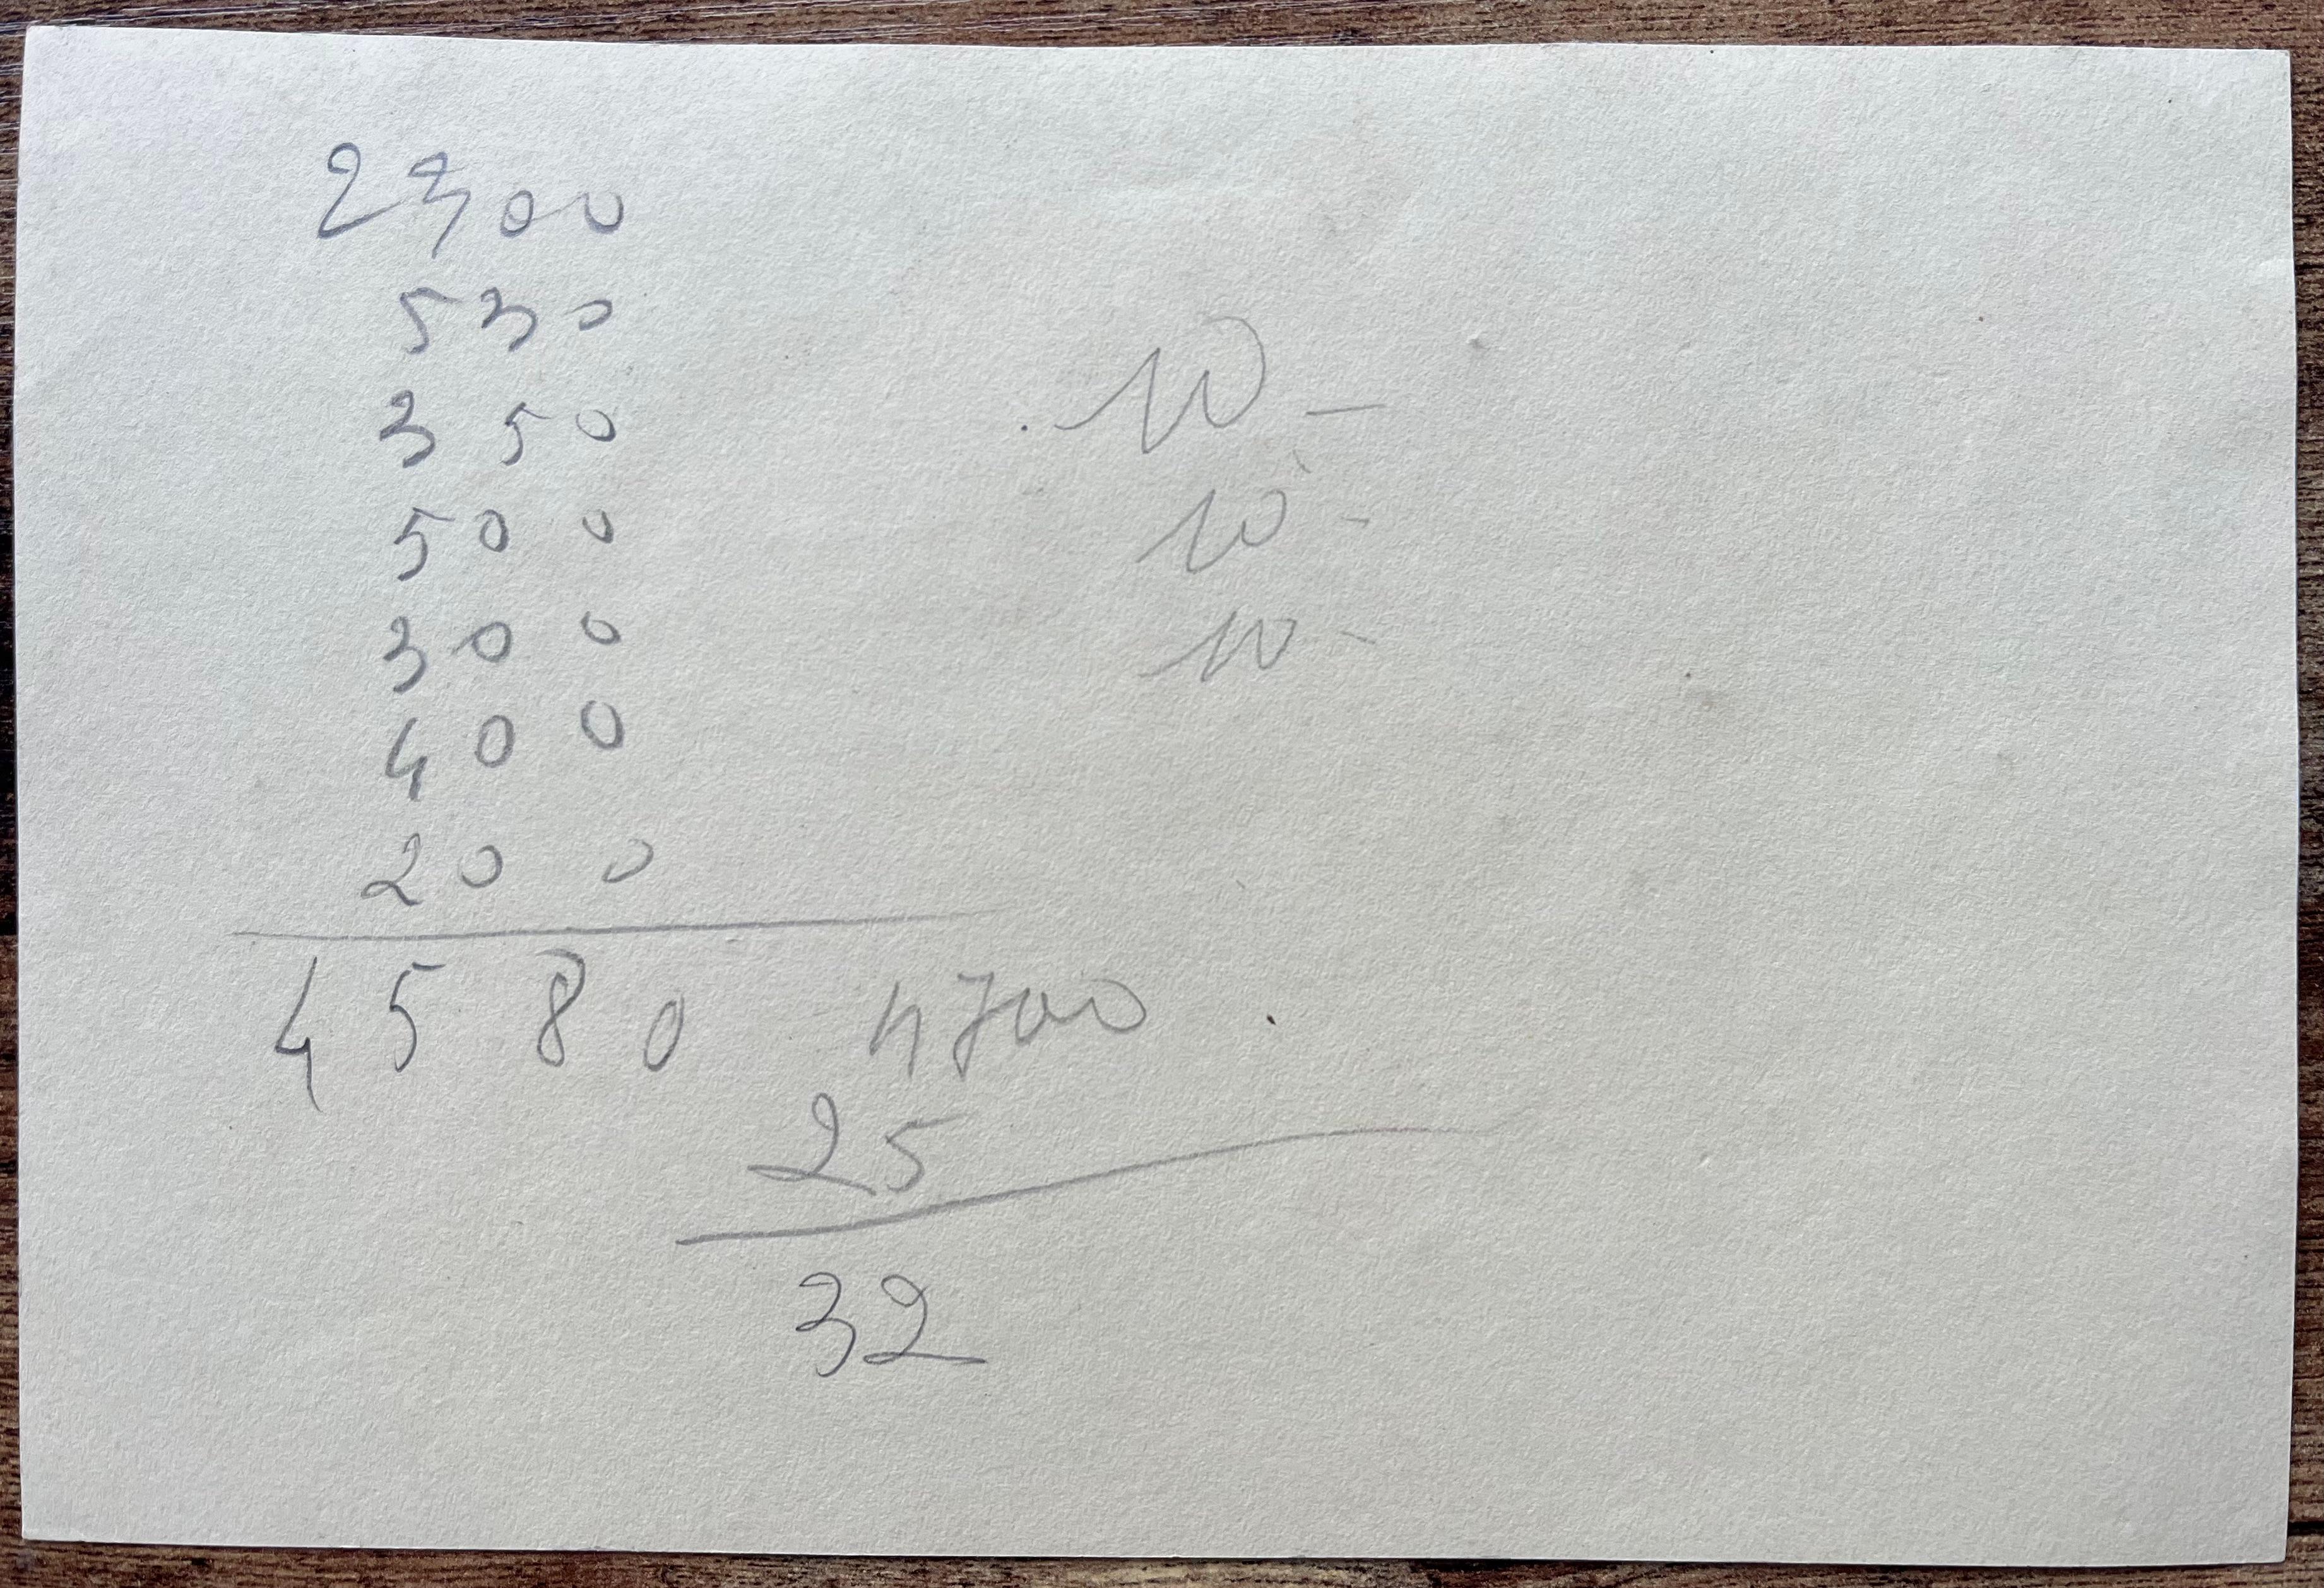 2300
530
350
500
300
400
200
4580 4700
25
32
10 -
10 -
10 -